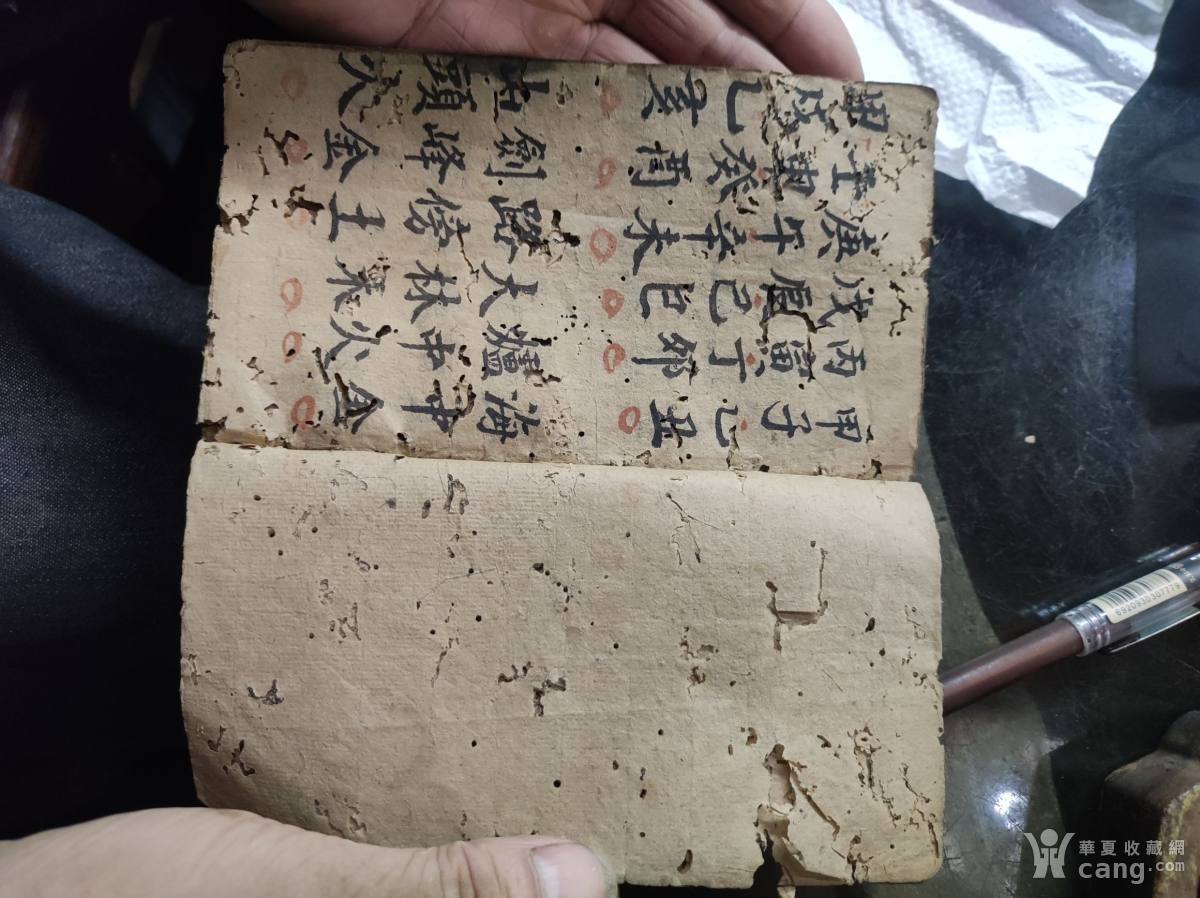 甲子乙丑海中金
丙寅丁卯爐中火
戊辰己巳大林木
庚午辛未路傍土
壬申癸酉劍峰金
甲戌乙亥山頭火
6920930307779
華夏收藏網
cang.com